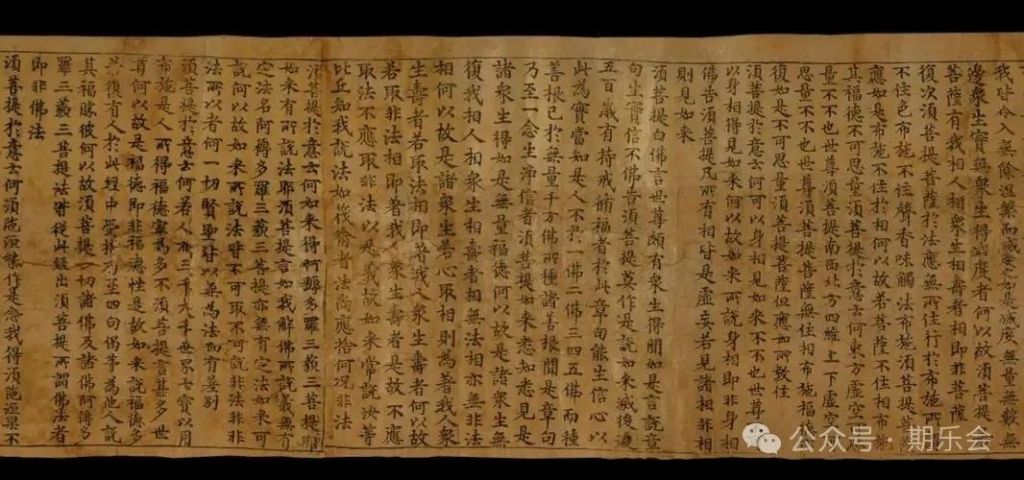 我皆令入無餘涅槃而滅度之如是滅度無量無數無
邊衆生實無衆生得滅度者何以故須菩提
菩薩有我相人相衆生相壽者相即非菩薩
復次須菩提菩薩於法應無所住行於布施所
不住色布施不住聲香味觸法布施須菩提菩
應如是布施不住於相何以故若菩薩不住相布
其福德不可思量須菩提於意云何東方虛空
量不不也世尊須菩提南西北方四維上下虛空
思量不不也世尊須菩提菩薩無住相布施福德
復如是不可思量須菩提菩薩但應如所教住
須菩提於意云何可以身相見如來不不也世尊
以身相得見如來何以故如來所說身相即非身相
佛告須菩提凡所有相皆是虛妄若見諸相非相
則見如來
須菩提白佛言世尊頗有衆生得聞如是言說章
句生實信不佛告須菩提莫作是說如來滅後後
五百歲有持戒脩福者於此章句能生信心以
此為實當知是人不於一佛二佛三四五佛而種
善根已於無量千万佛所種諸善根聞是章句
乃至一念生淨信者須菩提如來悉知悉見是
諸衆生得如是無量福德何以故是諸衆生無
復我相人相衆生相壽者相無法相亦無非法
相何以故是諸衆生若心取相則為著我人衆
生壽者若取法相即著我人衆生壽者何以故
若取非法相即著我人衆生壽者是故不應
取法不應取非法以是義故如來常說汝等
比丘知我說法如筏喻者法尚應捨何況非法
須菩提於意云何如來得阿耨多羅三藐三菩提耶
如來有所說法耶須菩提言如我解佛所說義無有
定法名阿耨多羅三藐三菩提亦無有定法如來可
說何以故如來所說法皆不可取不可說非法非非
法所以者何一切賢聖皆以無為法而有差別
須菩提於意云何若人滿三千大千世界七寶以用
布施是人所得福德寧為多不須菩提言甚多世
尊何以故是福德即非福德性是故如來說福德多
若復有人於此經中受持乃至四句偈等為他人說
其福勝彼何以故須菩提一切諸佛及諸佛阿耨多
羅三藐三菩提法皆從此經出須菩提所謂佛法者
即非佛法
須菩提於意云何須陀洹能作是念我得須陀洹果不
公众号·期乐会